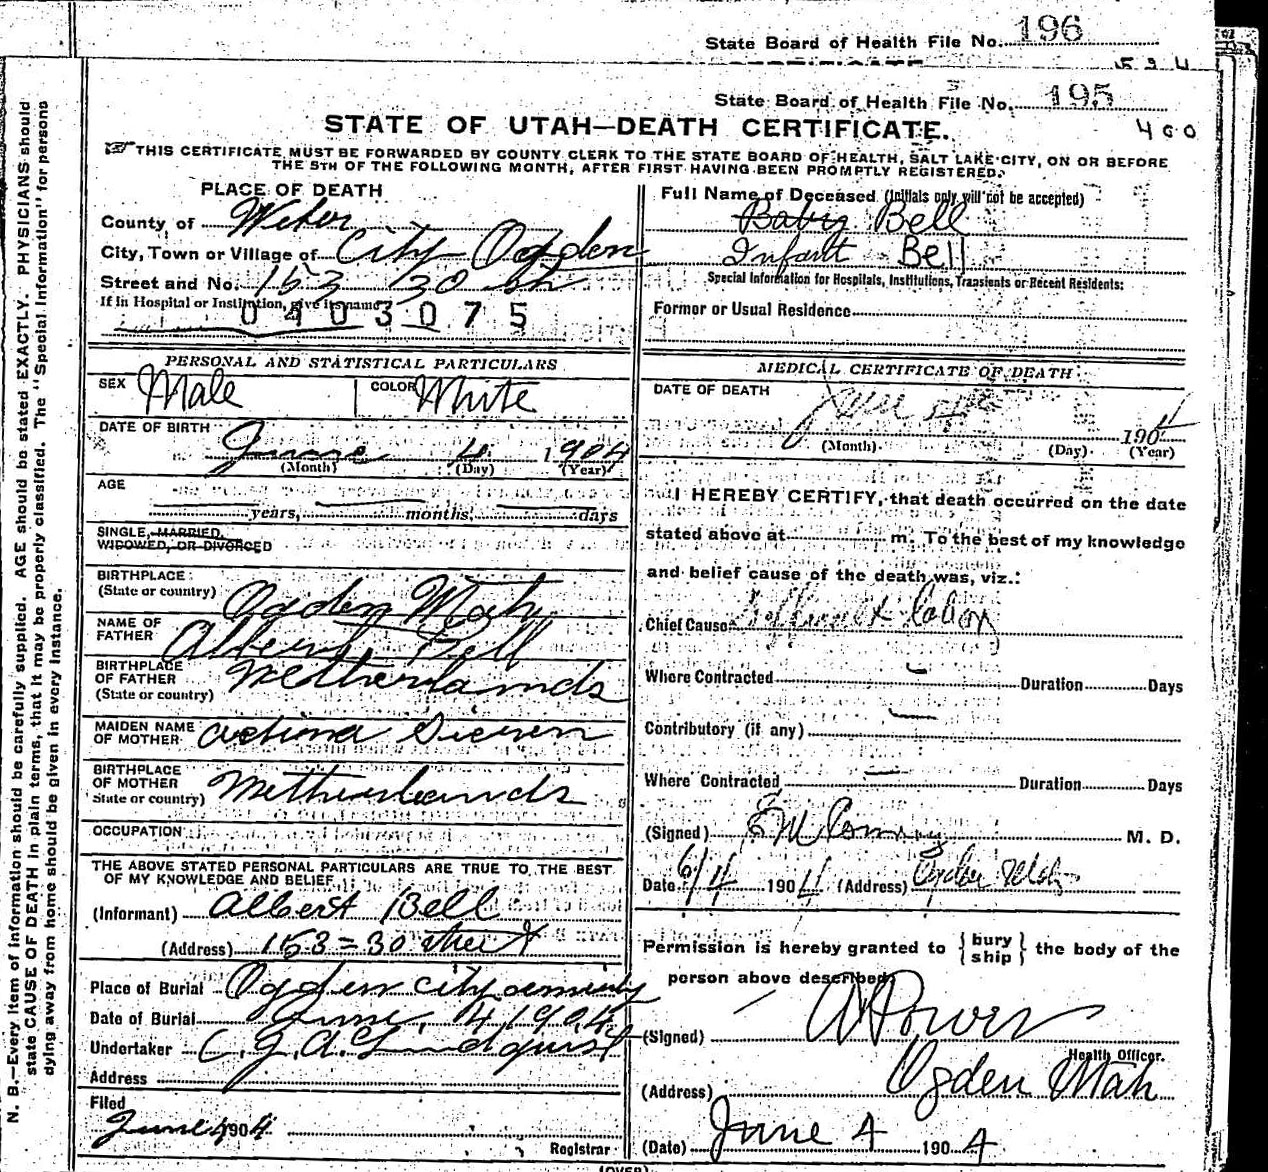 State Board of Health File No. 196
State Board of Health File No. 195
400
STATE OF UTAH—DEATH CERTIFICATE.
THIS CERTIFICATE MUST BE FORWARDED BY COUNTY CLERK TO THE STATE BOARD OF HEALTH, SALT LAKE CITY, ON OR BEFORE
THE 5TH OF THE FOLLOWING MONTH, AFTER FIRST HAVING BEEN PROMPTLY REGISTERED.
N. B.—Every item of information should be carefully supplied. AGE should be stated EXACTLY. PHYSICIANS should
state CAUSE OF DEATH in plain terms, that it may be properly classified. The "Special Information" for persons
dying away from home should be given in every instance.
PLACE OF DEATH
County of Weber
City, Town or Village of City Ogden
Street and No. 153 30 th
If in Hospital or Institution, give its name
0403075
PERSONAL AND STATISTICAL PARTICULARS
SEX Male COLOR White
DATE OF BIRTH June 4 1904
(Month) (Day) (Year)
AGE
years, months, days
SINGLE, MARRIED,
WIDOWED, OR DIVORCED
BIRTHPLACE
(State or country) Ogden Utah
NAME OF
FATHER Albert Bell
BIRTHPLACE
OF FATHER
(State or country) Netherlands
MAIDEN NAME
OF MOTHER
BIRTHPLACE
OF MOTHER
State or country) Netherlands
OCCUPATION
THE ABOVE STATED PERSONAL PARTICULARS ARE TRUE TO THE BEST
OF MY KNOWLEDGE AND BELIEF
(Informant) Albert Bell
(Address) 153 = 30 street
Place of Burial Ogden city cemetery
Date of Burial June 4 1904
Undertaker C. J. A. Lindquist
Address
Filed
June 4 1904
Registrar
Full Name of Deceased (Initials only will not be accepted)
Baby Bell
Infant Bell
Special Information for Hospitals, Institutions, Transients or Recent Residents:
Former or Usual Residence
MEDICAL CERTIFICATE OF DEATH
DATE OF DEATH June 4th 1904
(Month) (Day) (Year)
I HEREBY CERTIFY, that death occurred on the date
stated above at m. To the best of my knowledge
and belief cause of the death was, viz.:
Chief Cause Difficult labor
Where Contracted Duration Days
Contributory (if any)
Where Contracted Duration Days
(Signed) M. D.
Date 6/4 1904 (Address) Ogden Utah
Permission is hereby granted to { bury ship } the body of the
person above described
(Signed) Power
Health Officer.
(Address) Ogden Utah
(Date) June 4 1904
(OVER)